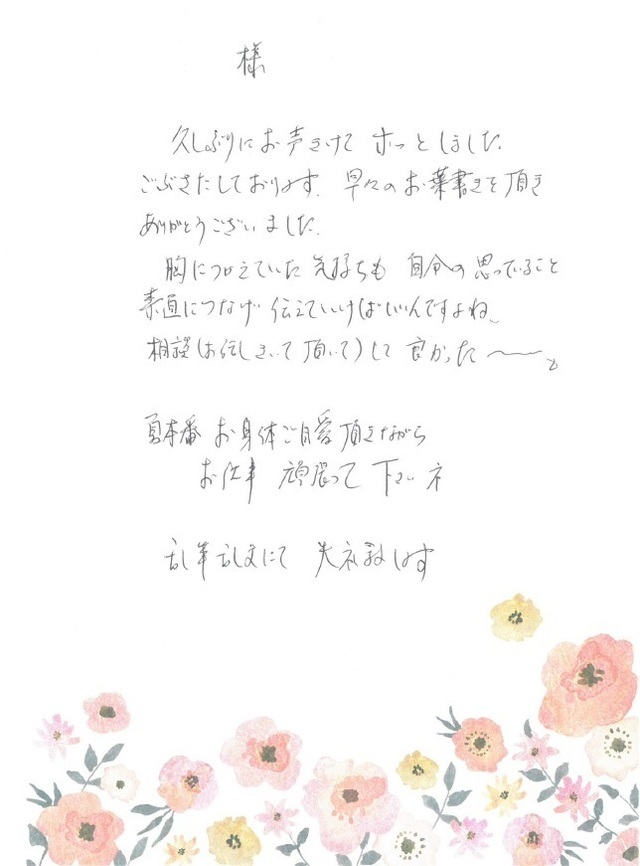 様
久しぶりにお声きけて ホッとしました
ごぶさたしております。早々のお葉書きを頂き
ありがとうございました。
胸につかえていた気持ちも 自分の思っていること
素直につなげ 伝えていけばいいんですよね。
相談(お話しきいて頂いて)して 良かった〜と
夏本番 お身体ご自愛頂きながら
お仕事 頑張って下さいネ
乱筆乱文にて 失礼致します